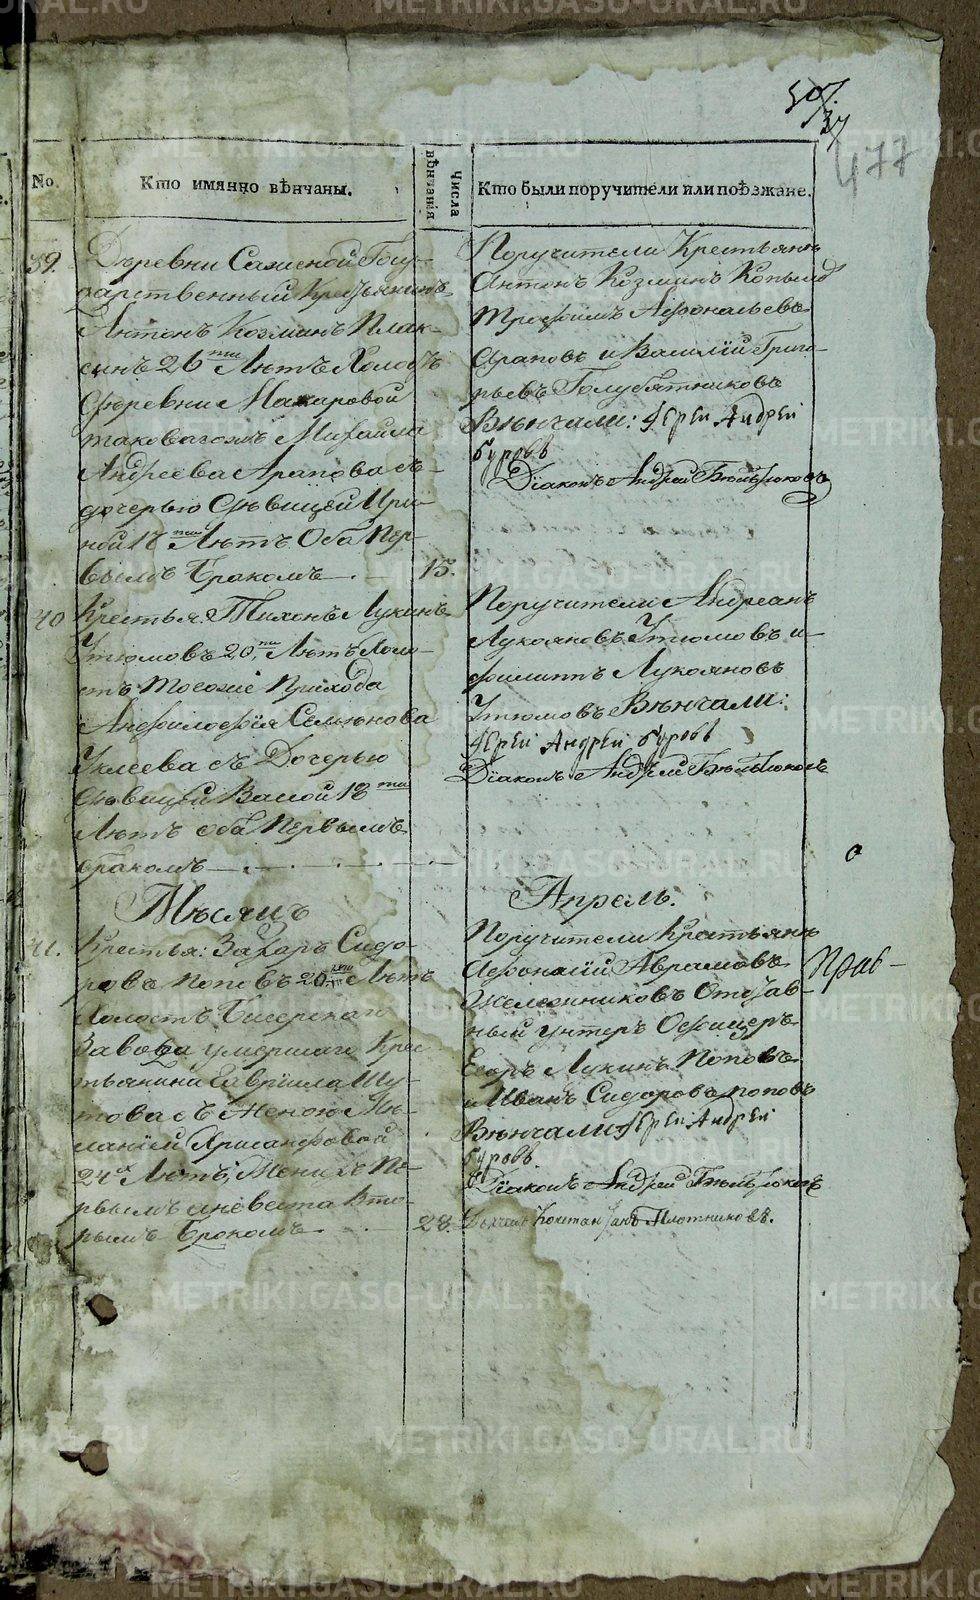 507.
37
477
No.
Кто имянно вѣнчаны.
Числа вѣнчанія
Кто были поручители или поѣзжане.
39.
Дѣревни Сажиной Госу-
дарственный Крестьянинъ
Антонъ Козминъ Плак-
синъ 26ти Лѣтъ Холостъ
Дѣревни Макаровой
таковагожъ Михайла
Андреева Арапова съ
дочерью Дѣвицей Ири-
ной 18ти Лѣтъ Оба Пер-
вымъ Бракомъ
15.
Поручители Крестьянъ
Антонъ Козминъ Копыловъ
Трофимъ Афонасьевъ
Араповъ и Василій Григо-
рьевъ Голубятниковъ
Вѣнчали: Іерей Андрей
Буровъ
Діаконъ Андрей
40
Крестья: Тихонъ Лукинъ
Утюмовъ 20ти Лѣтъ Холо-
стъ Тогоже Прихода
Анфилофія Семѣнова
Уклеева съ Дочерью
Дѣвицей 18ти
Лѣтъ оба Первымъ
бракомъ
Поручители Андреанъ
Лукояновъ Утюмовъ и
Филиппъ Лукояновъ
Утюмовъ Вѣнчали:
Іерей Андрей Буровъ
Діаконъ Андрей
Мѣсяцъ
Апрель.
41.
Крестья: Захаръ Сидо-
ровъ Поповъ 20ти Лѣтъ
Холостъ Бисерскаго
Завода умершаго Крес
тьянина Гавріила Шу-
това съ Женою Мѣ-
ланіей Хрисанфовой
24хъ Лѣтъ, Женихъ Пе-
рвымъ а невѣста Вто-
рымъ Бракомъ
28.
Поручители Крестьянъ
Афонасій Аврамовъ
Желѣзниковъ Отстав-
ный унтеръ Офицеръ
Егоръ Лукинъ Поповъ
и Иванъ Сидоровъ Поповъ
Вѣнчали Іерей Андрей
Буровъ
Діаконъ Андрей
Дьячекъ Плотниковъ.
METRIKI.GASO-URAL.RU